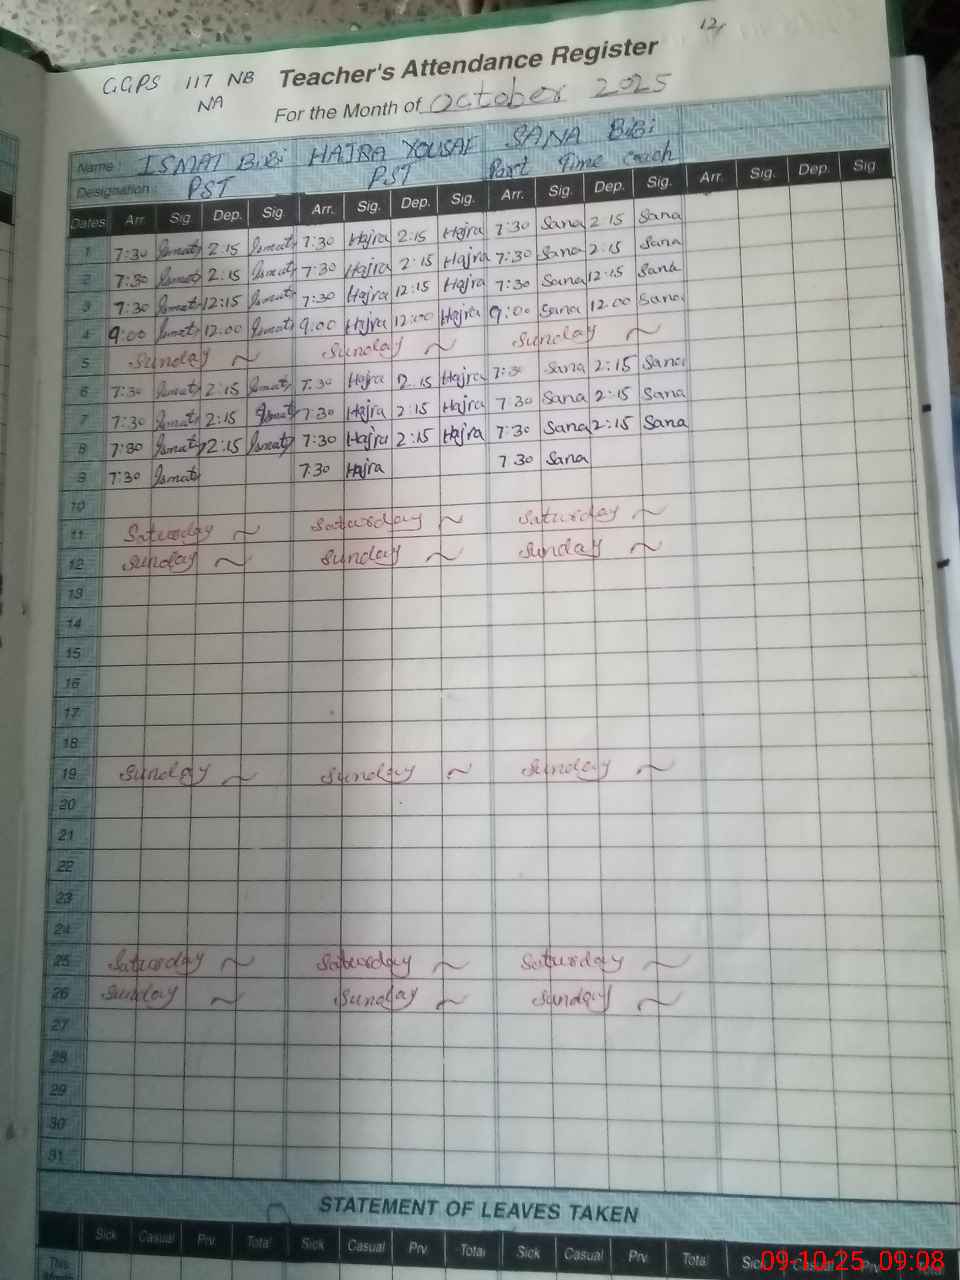 12,
GGPS 117 NB Teacher's Attendance Register
NA
For the Month of October 2025
Name : ISMAT BiBi HAJRA YOUSAF SANA BiBi
Designation : PST PST Part Time coach
Dates Arr. Sig Dep. Sig Arr. Sig. Dep. Sig. Arr. Sig. Dep. Sig. Arr. Sig. Dep. Sig.
1 7:30 Ismat 2:15 Ismat 7:30 Hajra 2:15 Hajra 7:30 Sana 2:15 Sana
2 7:30 Ismat 2:15 Ismat 7:30 Hajra 2:15 Hajra 7:30 Sana 2:15 Sana
3 7:30 Ismat 12:15 Ismat 7:30 Hajra 12:15 Hajra 7:30 Sana 12:15 Sana
4 9:00 Ismat 12:00 Ismat 9:00 Hajra 12:00 Hajra 9:00 Sana 12:00 Sana
5 Sunday ~ Sunday ~ Sunday ~
6 7:30 Ismat 2:15 Ismat 7:30 Hajra 2:15 Hajra 7:30 Sana 2:15 Sana
7 7:30 Ismat 2:15 Ismat 7:30 Hajra 2:15 Hajra 7:30 Sana 2:15 Sana
8 7:30 Ismat 2:15 Ismat 7:30 Hajra 2:15 Hajra 7:30 Sana 2:15 Sana
9 7:30 Ismat 7:30 Hajra 7:30 Sana
10
11 Saturday ~ Saturday ~ Saturday ~
12 Sunday ~ Sunday ~ Sunday ~
13
14
15
16
17
18
19 Sunday ~ Sunday ~ Sunday ~
20
21
22
23
24
25 Saturday ~ Saturday ~ Saturday ~
26 Sunday ~ Sunday ~ Sunday ~
27
28
29
30
31
STATEMENT OF LEAVES TAKEN
Sick Casual Prv. Total Sick Casual Prv. Total Sick Casual Prv. Total Sick Casual Prv. Total
This
09-10-25 09:08